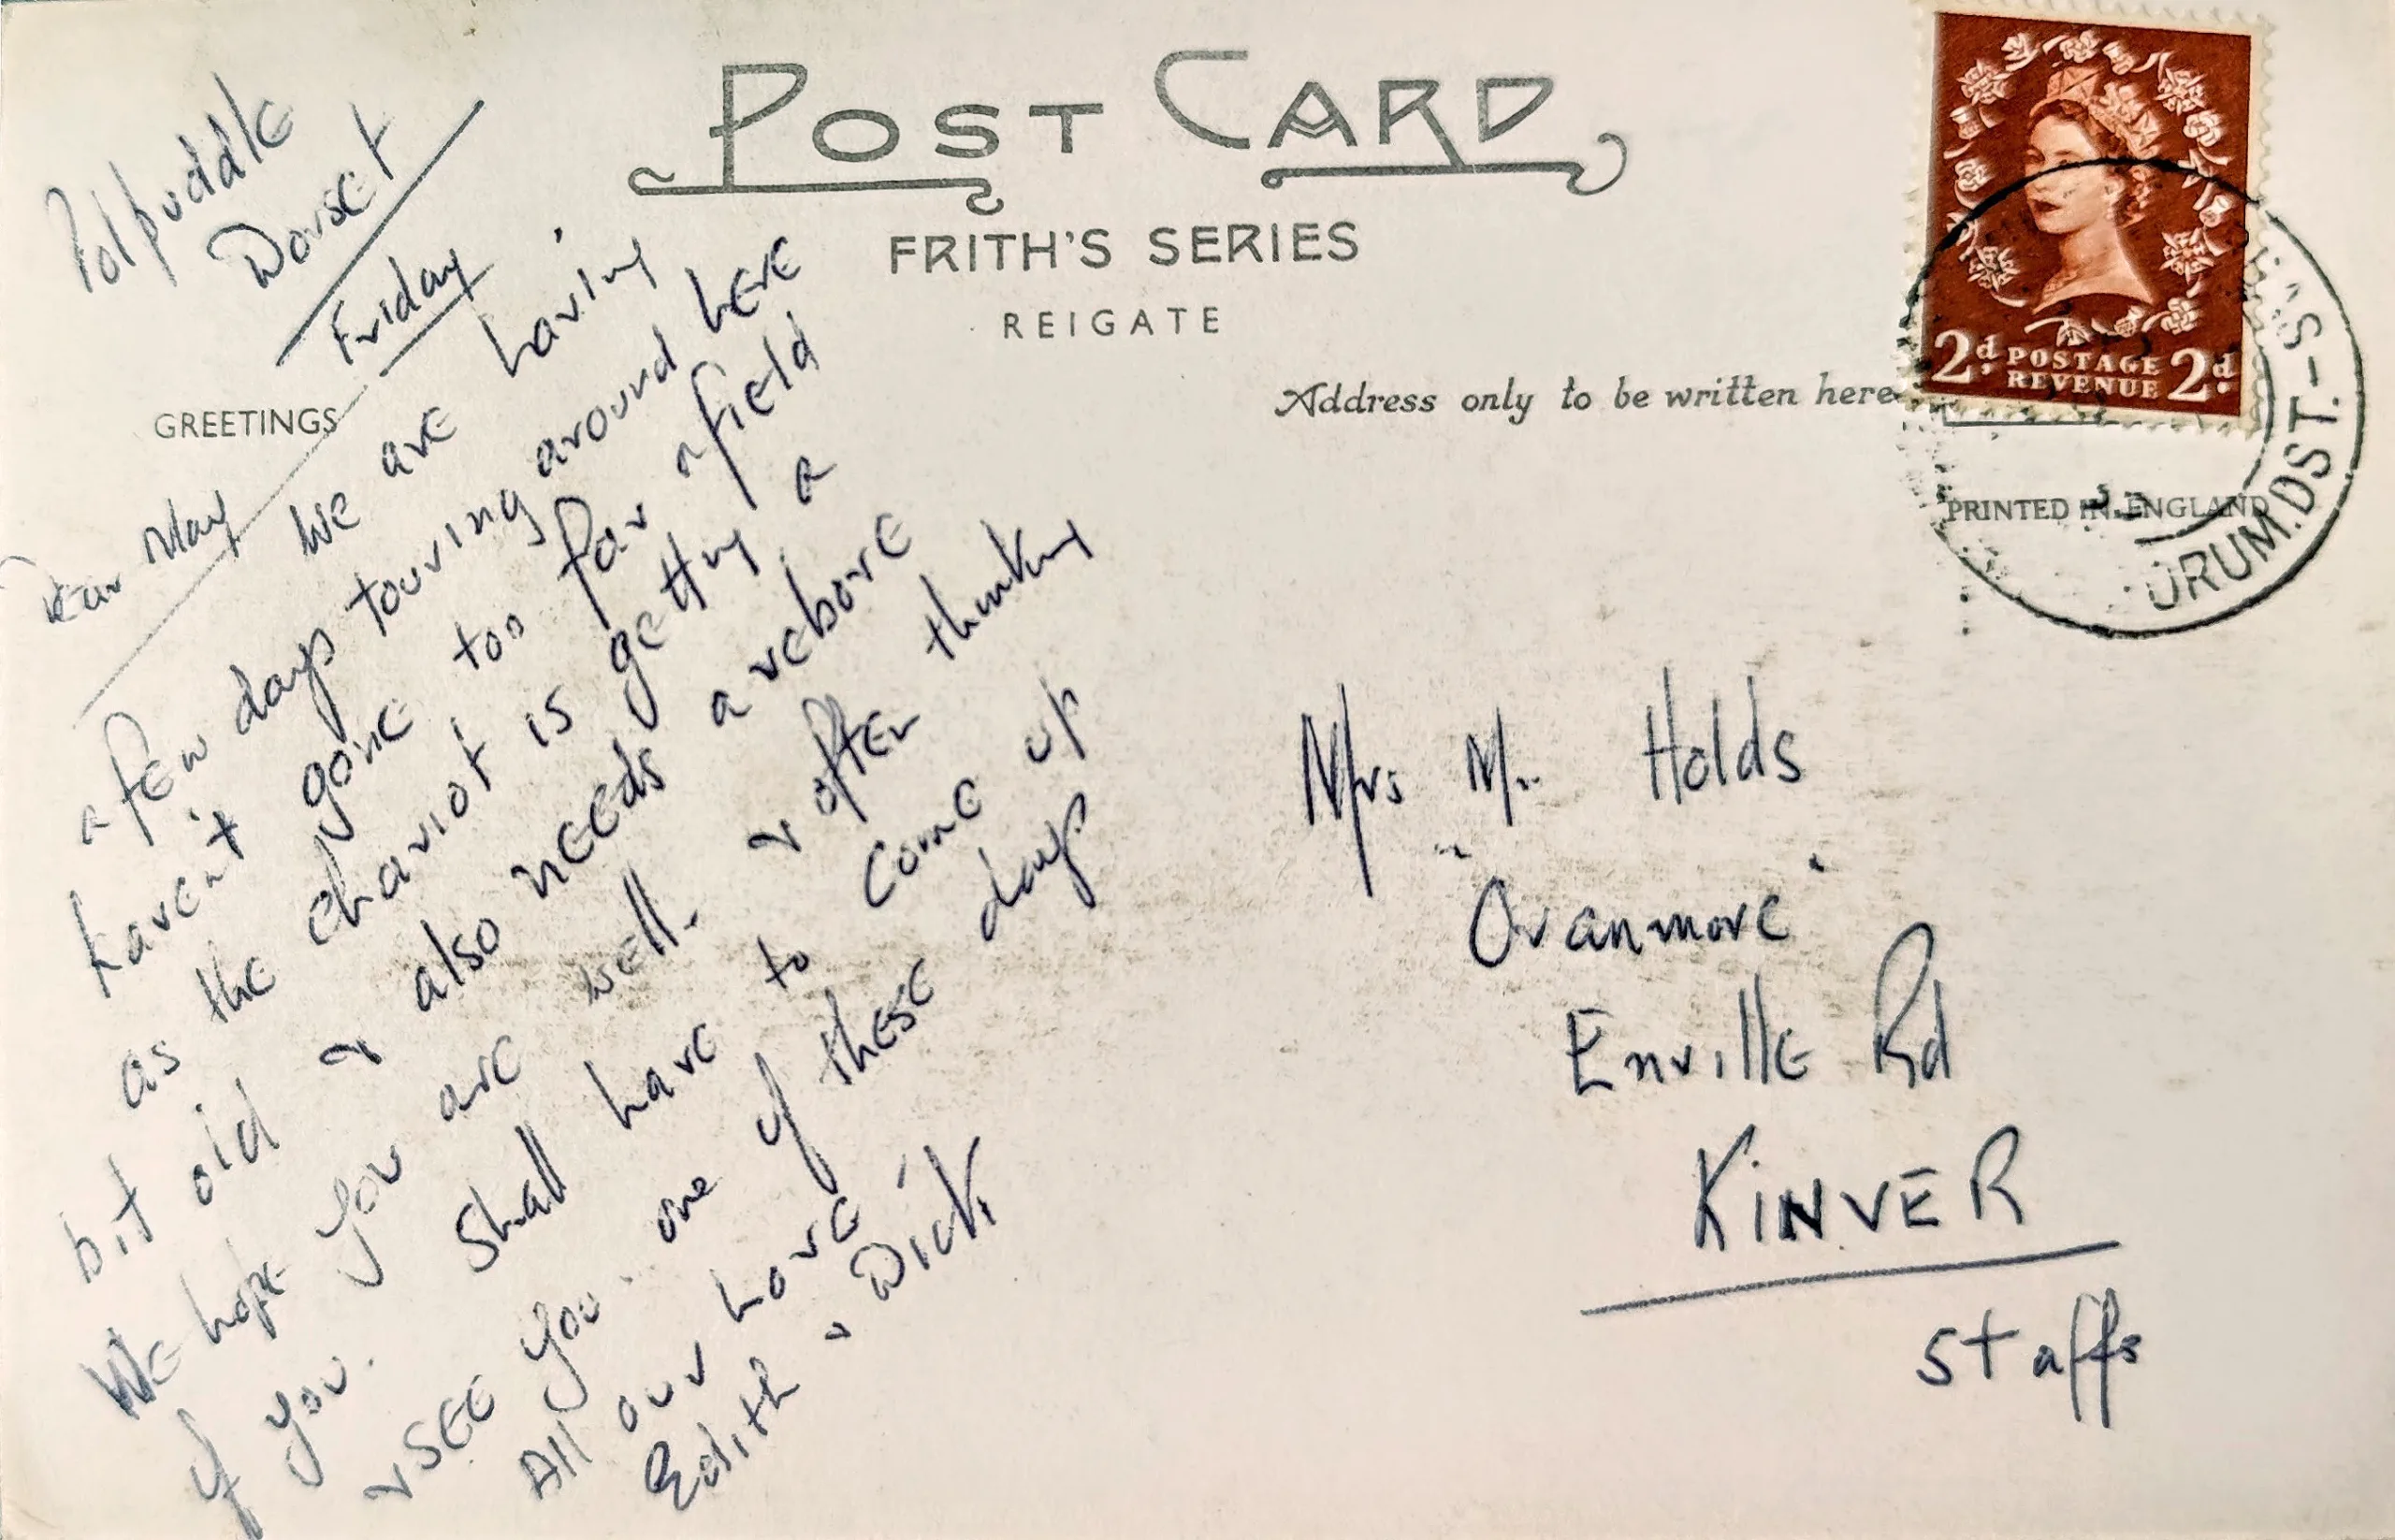 POST CARD
FRITH'S SERIES
REIGATE
Address only to be written here
PRINTED IN ENGLAND
GREETINGS
2d POSTAGE 2d
REVENUE
DST.-
Tolpuddle
Dorset
Friday
Dear May
We are having
a few days touring around here
haven't gone too far afield
as the chariot is getting a
bit old & also needs a rebore
We hope you are well. & often thinking
of you. Shall have to come up
& see you one of these days
All our love
Edith & Dick
Mrs M. Holds
"Oranmore"
Enville Rd
KiNVER
Staffs